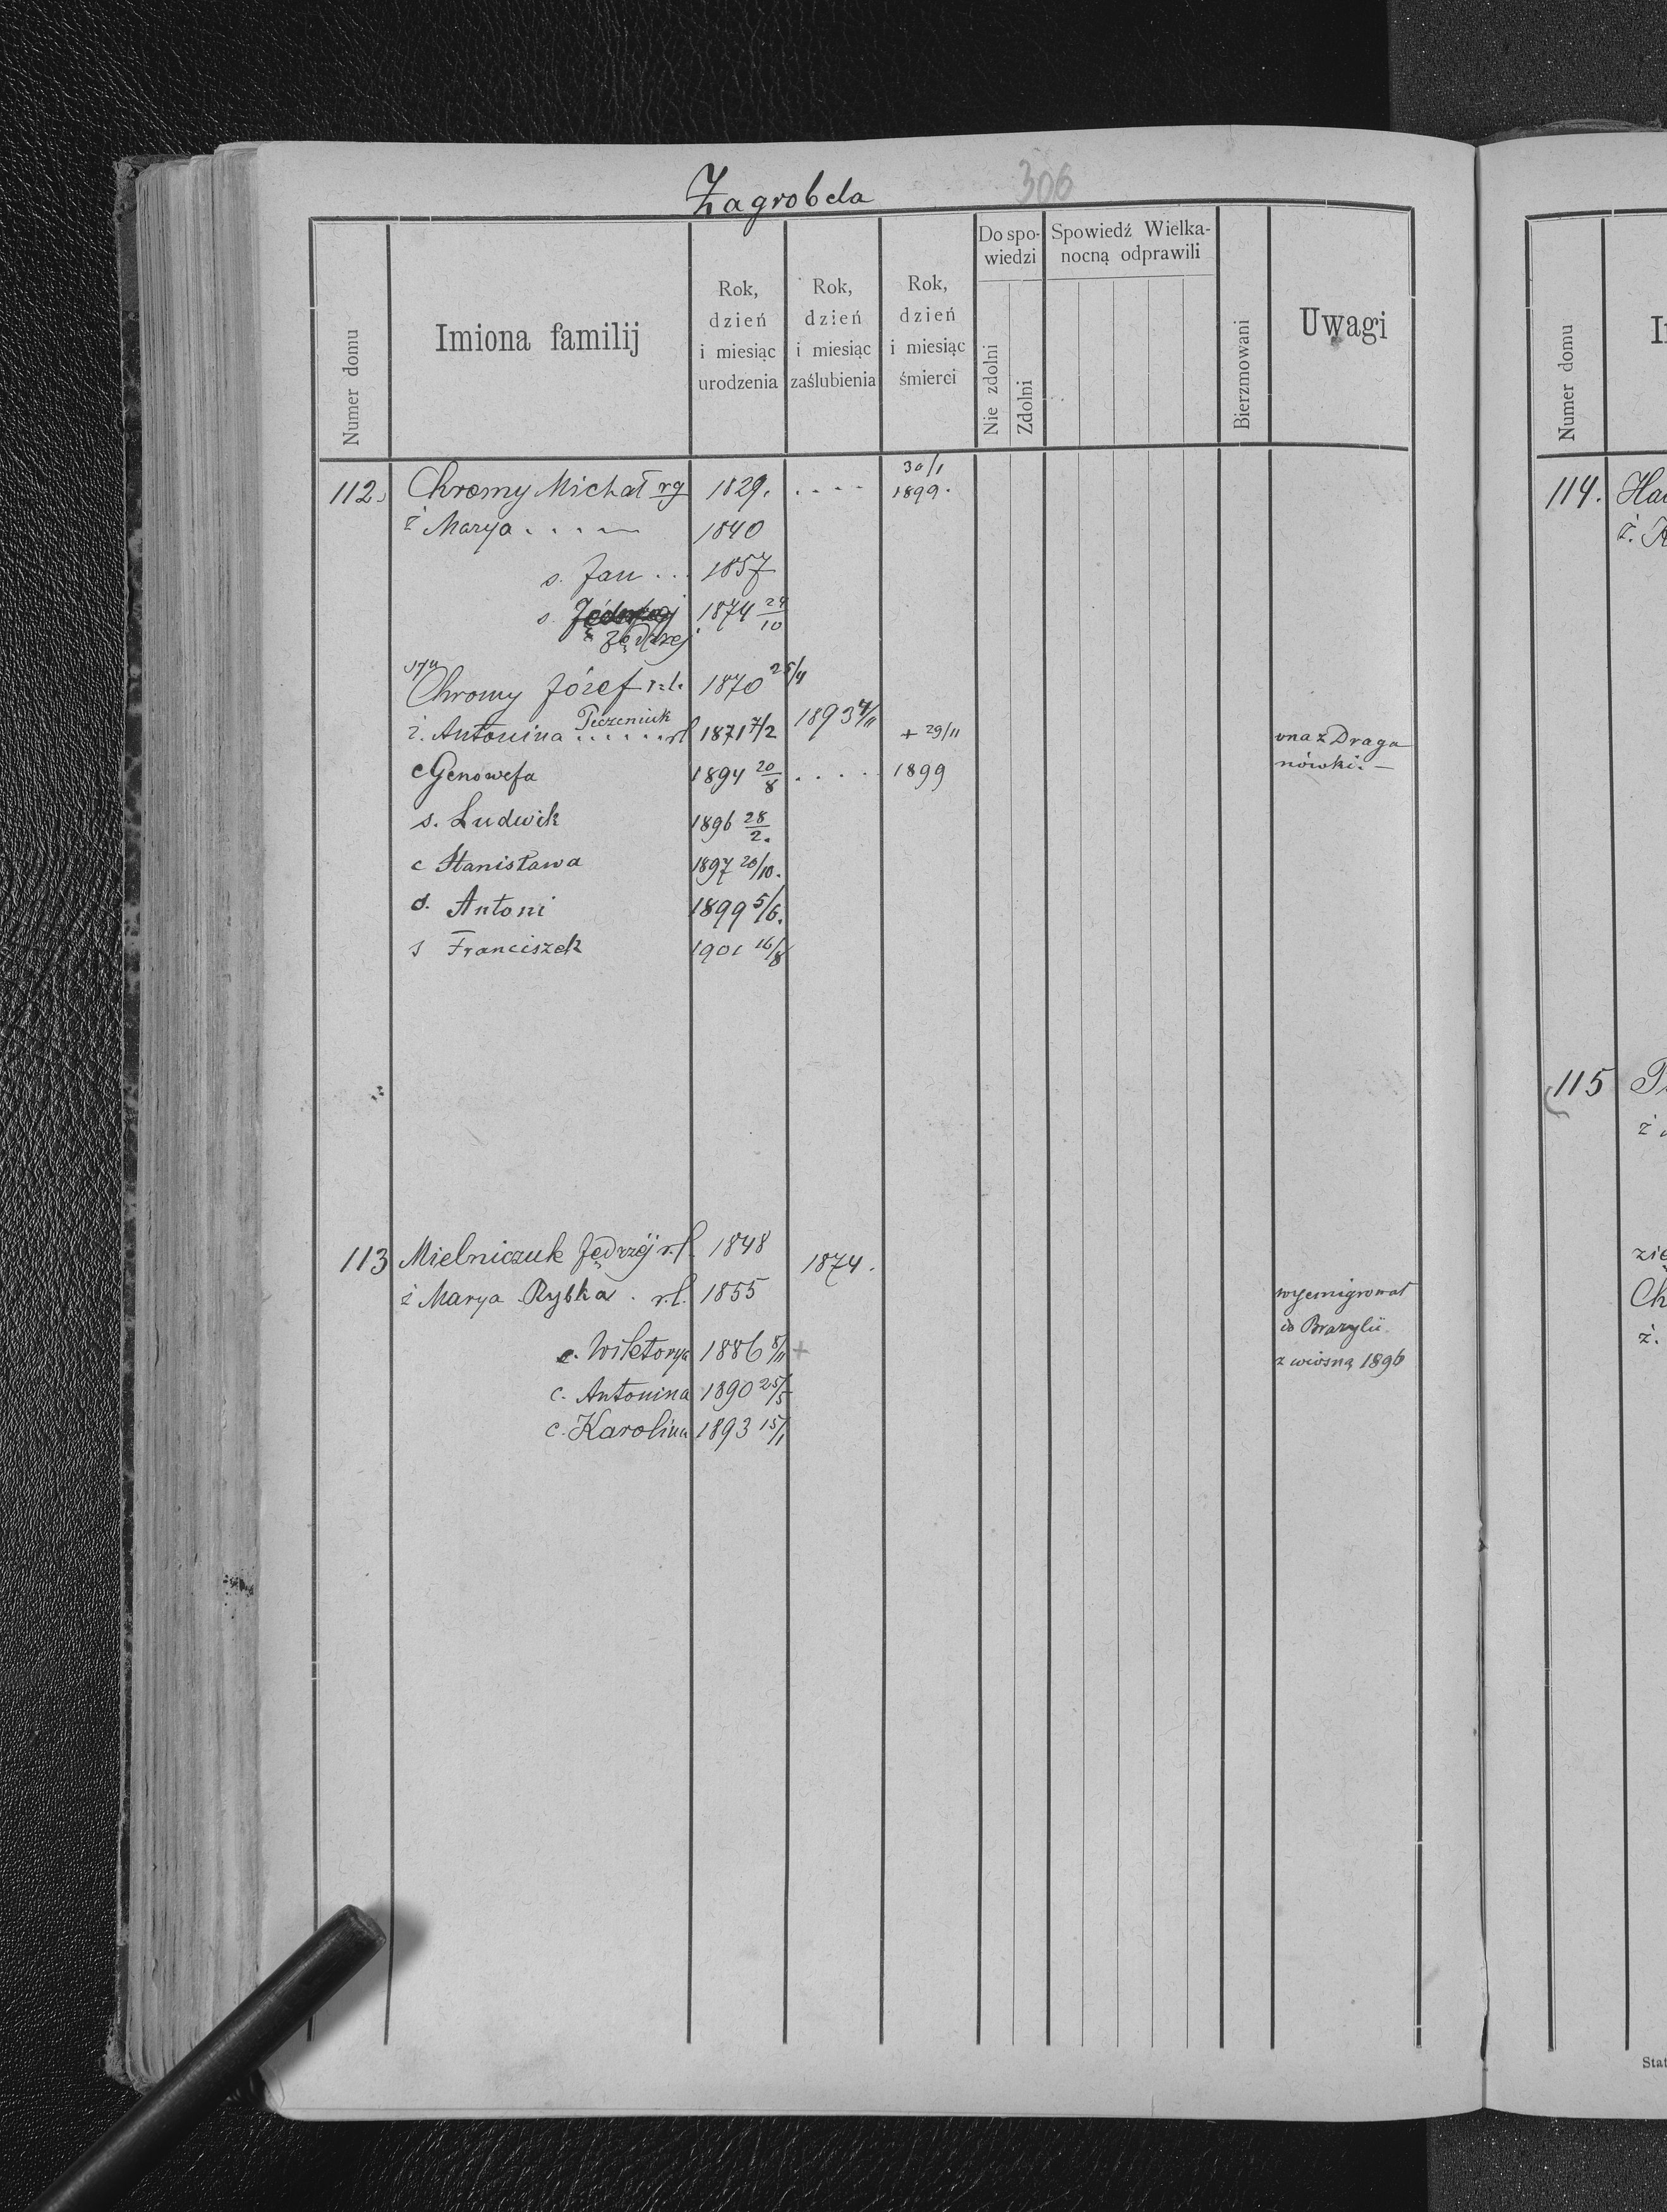 Zagrobela 306
Numer domu
Imiona familij
Rok, dzień i miesiąc urodzenia
Rok, dzień i miesiąc zaślubienia
Rok, dzień i miesiąc śmierci
Do spowiedzi
Nie zdolni
Zdolni
Spowiedź Wielkanocną odprawili
Bierzmowani
Uwagi
112. Chromy Michał rg 1829. . . . . 30/1 1899.
ż Marya . . . . 1840
s. Jan . . . 1857
s. Jędrzej 1874 29/10
Jędrzej
syn
Chromy Józef r.l. 1870 25/4
ż. Antonina Peczeniuk . . . . . . rl 1871 7/2 1893 7/11 + 29/11 ona z Draga
c Genowefa 1894 20/8 . . . . . 1899 nówki. —
s. Ludwik 1896 28/2.
c Stanisława 1897 20/10.
s. Antoni 1899 5/6.
s Franciszek 1901 16/8
113 Mielniczuk Jędrzej r.l. 1848 1874.
ż Marya Rybka . r.l. 1855 wyemigrował
c. Wiktorya 1886 8/11 + do Brazylii
z wiosną 1896
c. Antonina 1890 25/5
c. Karolina 1893 15/1
Numer domu
114.
115